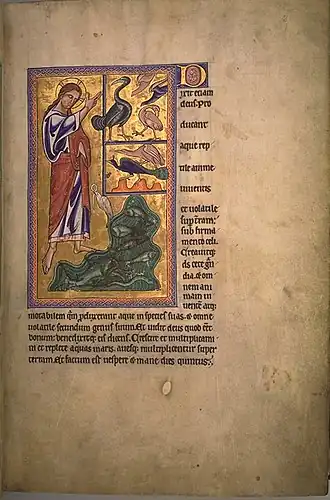 D
ixit etiam
deus. Pro
ducant
aque rep
tile anime
uiuentis
et uolatile
sup terram:
sub firma
mento celi.
Creauitqz
ds cete gn
dia. & om
nem ani
mam ui
uentē atqz
motabilem qm pduxerant aque in species suas. & omne
uolatile secundum genus suum. Et uidit deus quod eēt
bonum: benedixitqz eis dicens. Crescite et multiplicami
ni et replete aquas maris. auesqz multiplicentur super
terram. Et factum est uespere & mane dies quintus.